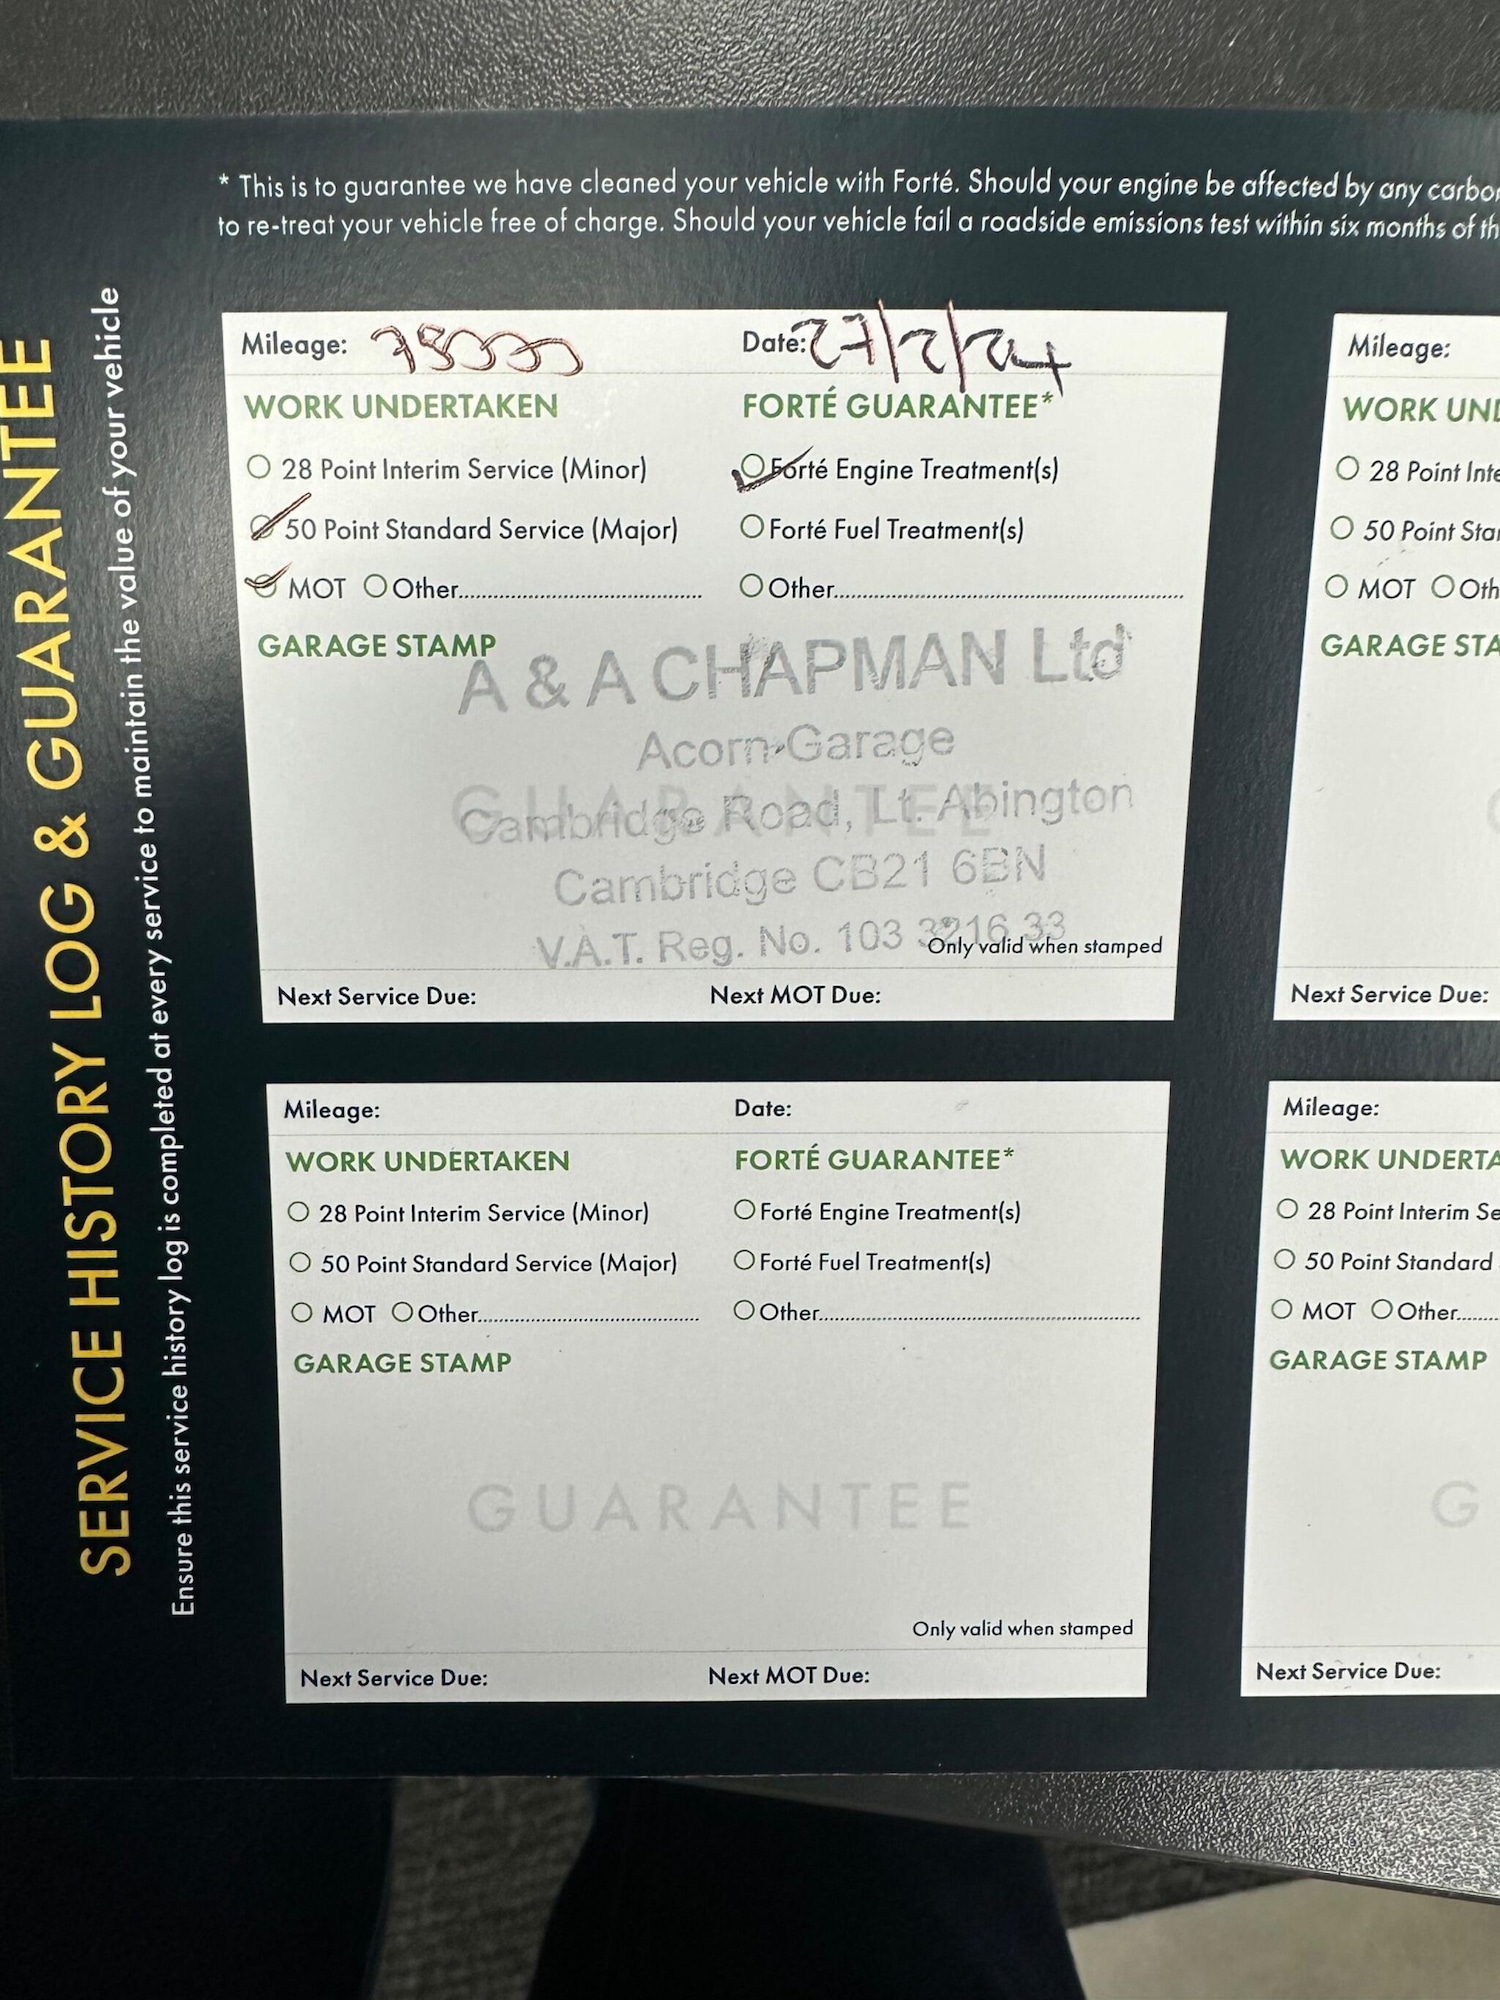 SERVICE HISTORY LOG & GUARANTEE
Ensure this service history log is completed at every service to maintain the value of your vehicle
* This is to guarantee we have cleaned your vehicle with Forté. Should your engine be affected by any carbon
to re-treat your vehicle free of charge. Should your vehicle fail a roadside emissions test within six months of th
Mileage: 75000 Date: 27/2/24
WORK UNDERTAKEN FORTÉ GUARANTEE*
28 Point Interim Service (Minor) Forté Engine Treatment(s)
50 Point Standard Service (Major) Forté Fuel Treatment(s)
MOT Other Other
GARAGE STAMP
A & A CHAPMAN Ltd
Acorn Garage
GUARANTEE
Cambridge Road, Lt. Abington
Cambridge CB21 6BN
V.A.T. Reg. No. 103 3216 33
Only valid when stamped
Next Service Due: Next MOT Due:
Mileage:
WORK UND
28 Point Inte
50 Point Star
MOT Oth
GARAGE STA
G
Next Service Due:
Mileage: Date:
WORK UNDERTAKEN FORTÉ GUARANTEE*
28 Point Interim Service (Minor) Forté Engine Treatment(s)
50 Point Standard Service (Major) Forté Fuel Treatment(s)
MOT Other Other
GARAGE STAMP
GUARANTEE
Only valid when stamped
Next Service Due: Next MOT Due:
Mileage:
WORK UNDERTA
28 Point Interim Se
50 Point Standard
MOT Other
GARAGE STAMP
G
Next Service Due: